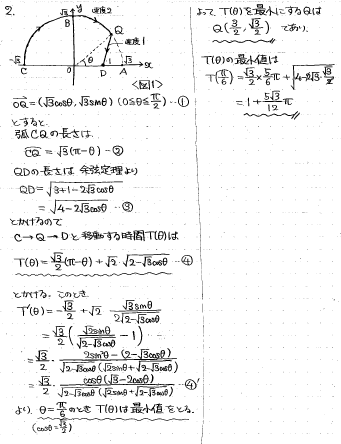 2.
y
√3
B
速度2
Q
速度1
-√3
C
0
θ
1
D
√3
A
x
<図1>
OQ = (√3cosθ, √3sinθ) (0≦θ≦π/2) …①
とすると
弧CQの長さは
CQ = √3(π-θ) …②
QDの長さは 余弦定理より
QD = √(3+1-2√3cosθ)
= √(4-2√3cosθ) …③
とかけるので
C→Q→Dと移動する時間T(θ)は
T(θ) = √3/2(π-θ) + √2・√(2-√3cosθ) …④
とかける。このとき
T'(θ) = -√3/2 + √2・√3sinθ/2√(2-√3cosθ)
= √3/2(√2sinθ/√(2-√3cosθ) - 1)
= √3/2・2sin²θ-(2-√3cosθ)/√(2-√3cosθ)(√2sinθ+√(2-√3cosθ))
= √3/2・cosθ(√3-2cosθ)/√(2-√3cosθ)(√2sinθ+√(2-√3cosθ)) …④'
より、θ=π/6のとき T(θ)は最小値をとる。
(cosθ=√3/2)
よって T(θ)を最小にするQは
Q(3/2, √3/2) であり、
T(θ)の最小値は
T(π/6) = √3/2×5/6π + √(4-2√3・√3/2)
= 1 + 5√3/12π